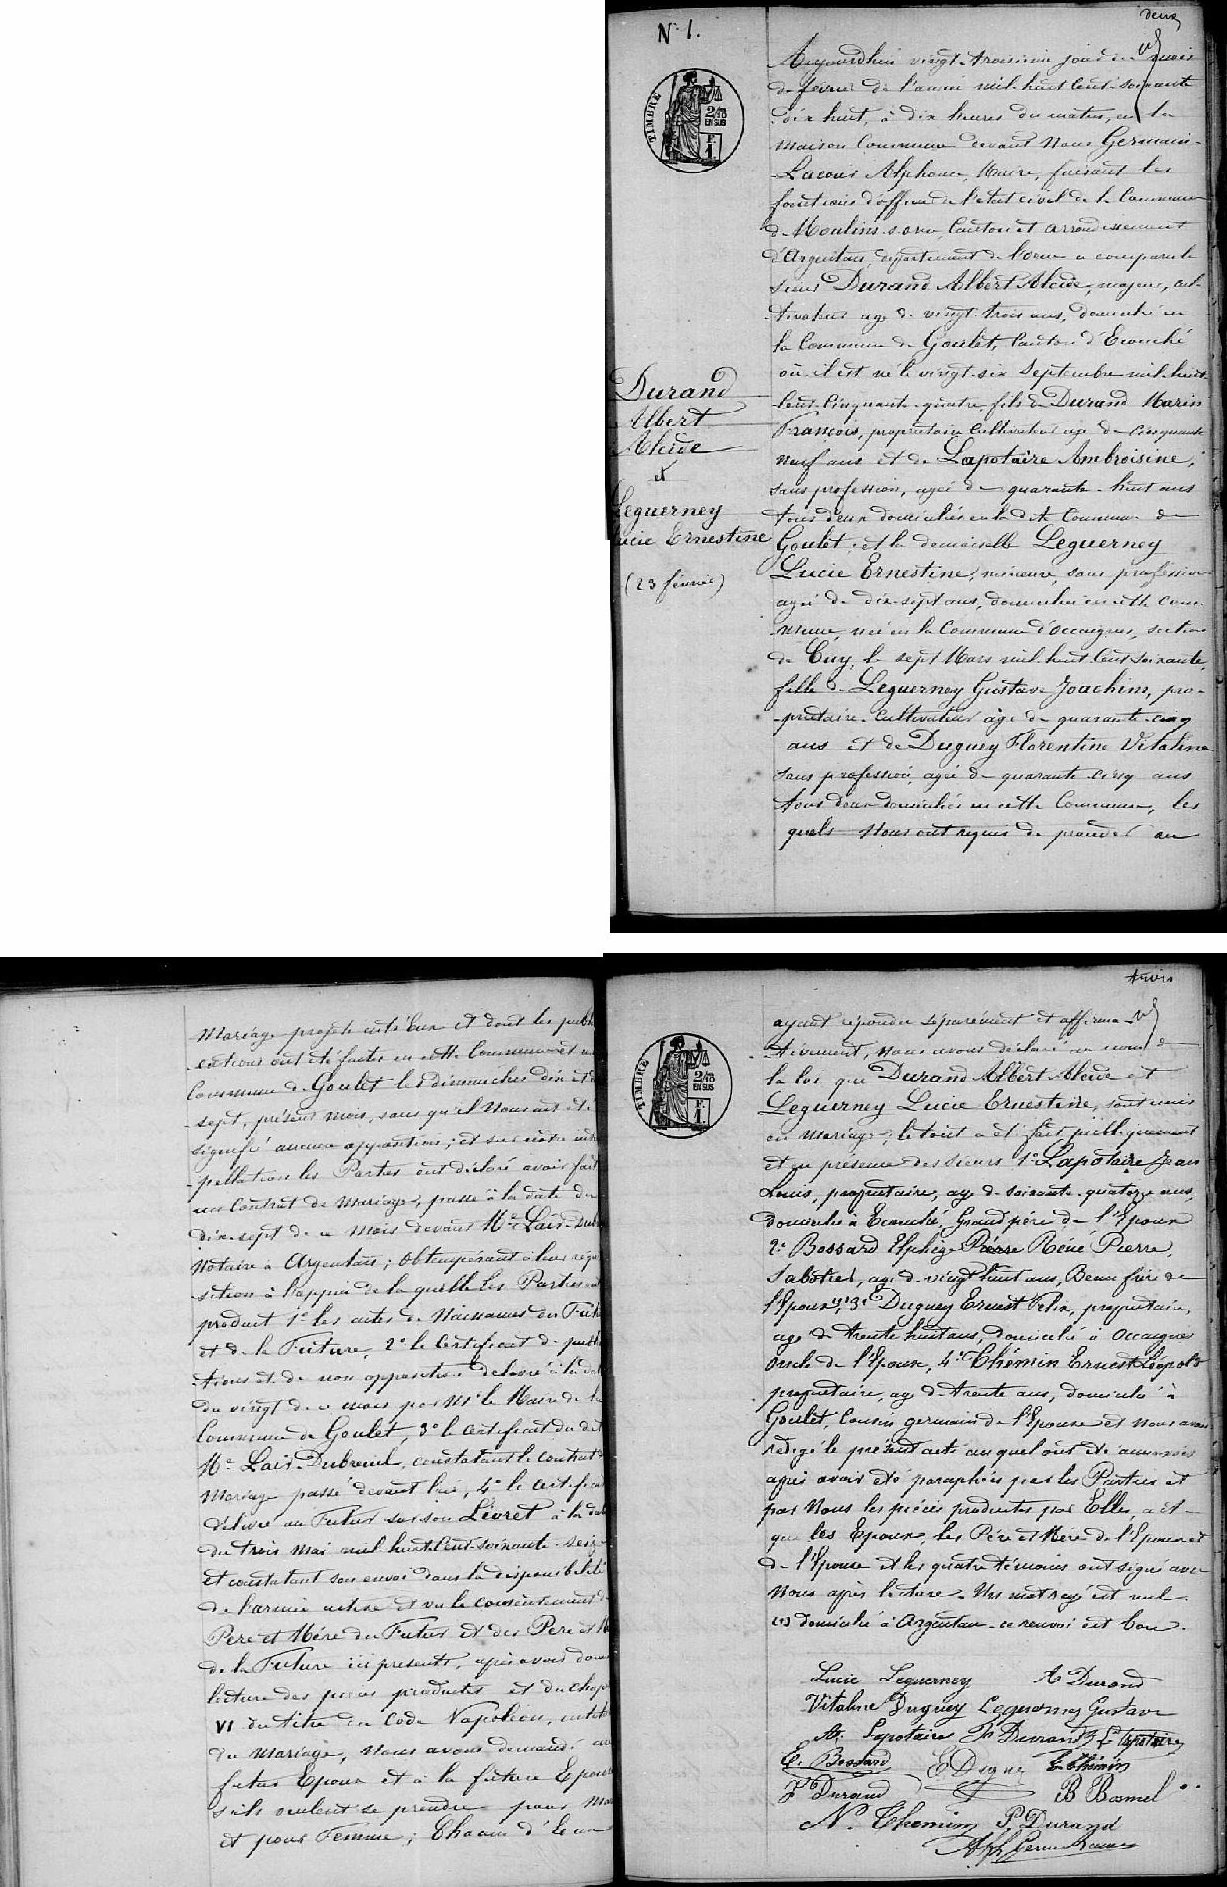 deux
N° 1.
TIMBRE
2/10 EN SUS
Durand
Albert
Alcide
et
Leguerney
Lucie Ernestine
(23 février)
Aujourd'hui vingt troisième jour du mois
de février de l'année mil huit cent soixante
dix huit, à dix heures du matin, en la
maison Commune devant Nous Germain-
Lacour Alphonse, Maire, faisant les
fonctions d'officier de l'état civil de la Commune
de Moulins s. orne, Canton et arrondissement
d'Argentan, département de l'orne a comparu le
sieur Durand Albert Alcide, majeur, cul-
tivateur agé de vingt-trois ans, domicilié en
la Commune de Goulet, Canton d'Ecouché
où il est né le vingt-six Septembre mil-huit-
cent-Cinquante-quatre fils de Durand Marin
François, propriétaire Cultivateur agé de Cinquante
neuf ans et de Lapotaire Ambroisine,
sans profession, agée de quarante-huit ans
tous deux domiciliés en la dite Commune de
Goulet; et la demoiselle Leguerney
Lucie Ernestine, mineure, sans profession
agée de dix-sept ans, domiciliée en cette com-
mune, née en la Commune d'occaignes, section
de Cuy, le sept Mars mil huit Cent soixante,
fille de Leguerney Gustave Joachim, pro-
priétaire-Cultivateur âgé de quarante-cinq
ans et de Duguey Florentine Vitaline
sans profession, agée de quarante-cinq ans
tous deux domiciliés en cette Commune, les
quels Nous ont requis de procéder au
Mariage projeté entr'Eux et dont les publi
cations ont été faites en cette Commune et en
Commune de Goulet les dimanches dix et
sept, présent mois, sans qu'il Nous ait été
signifié aucune opposition; et sur notre inter
pellation les Parties ont déclaré avoir fait
un Contrat de Mariage, passé à la date du
dix-sept de ce mois devant Me Lais-Dub
Notaire à Argentan; Obtempérant à leur réqui
sition à l'appui de la quelle les Parties ont
produit 1° les actes de Naissances du Futur
et de la Future, 2° le Certificat de publi
cations et de non opposition délivré à la date
du vingt de ce mois par Mr le Maire de la
Commune de Goulet, 3° le certificat du dit
Me Lais-Dubreuil, constatant le contrat de
Mariage passé devant lui, 4° le certificat
délivré au Futur sur son Livret à la date
du trois mai mil huit Cent soixante-seize
et constatant son envoi dans la disponibilité
de l'armée active et vu le consentement des
Père et Mère du Futur et des Père et M
de la Future ici présents, après avoir donné
lecture des pièces produites et du chap
VI du titre du Code Napoléon, intitulé
du Mariage, Nous avons demandé au
futur Epoux et à la future Epouse
s'ils veulent se prendre pour Mari
et pour Femme; Chacun d'Eux
trois
TIMBRE
2/10 EN SUS
ayant répondu séparément et affirma-
tivement, Nous avons déclaré au nom de
la loi que Durand Albert Alcide et
Leguerney Lucie Ernestine, sont unis
en mariage; le tout a été fait publiquement
et en présence des sieurs 1° Lapotaire Jean
Louis, propriétaire, agé de soixante-quatorze ans,
domicilié à Ecouché, Grand père de l'Epoux
2° Bossard Elphège Pierre Réné Pierre,
Sabotier, agé de vingt huit ans, Beau frère de
l'Epoux, 3° Duguey Ernest Félix, propriétaire,
agé de trente huit ans, domicilié à Occaignes
Oncle de l'Epouse, 4° Chémin Ernest Léopold
propriétaire, agé de trente ans, domicilié à
Goulet, Cousin germain de l'Epouse et Nous avons
rédigé le présent acte auquel ont été annexées
après avoir été paraphées par les Parties et
par Nous les pièces produites par Elles, acte
que les Epoux, les Père et Mère de l'Epoux et
de l'Epouse et les quatre témoins ont signé avec
Nous après lecture. Un mot rayé est nul.
(1) domicilié à Argentan. ce renvoi est bon.
Lucie Leguerney A. Durand
Vitaline Duguey Leguerney Gustave
A. Lapotaire F. Durand J. L. Lapotaire
E. Bossard E Duguey E. Chémin
F Durand B Bomel
N. Chemin P. Durand
Alph Germain Lacour